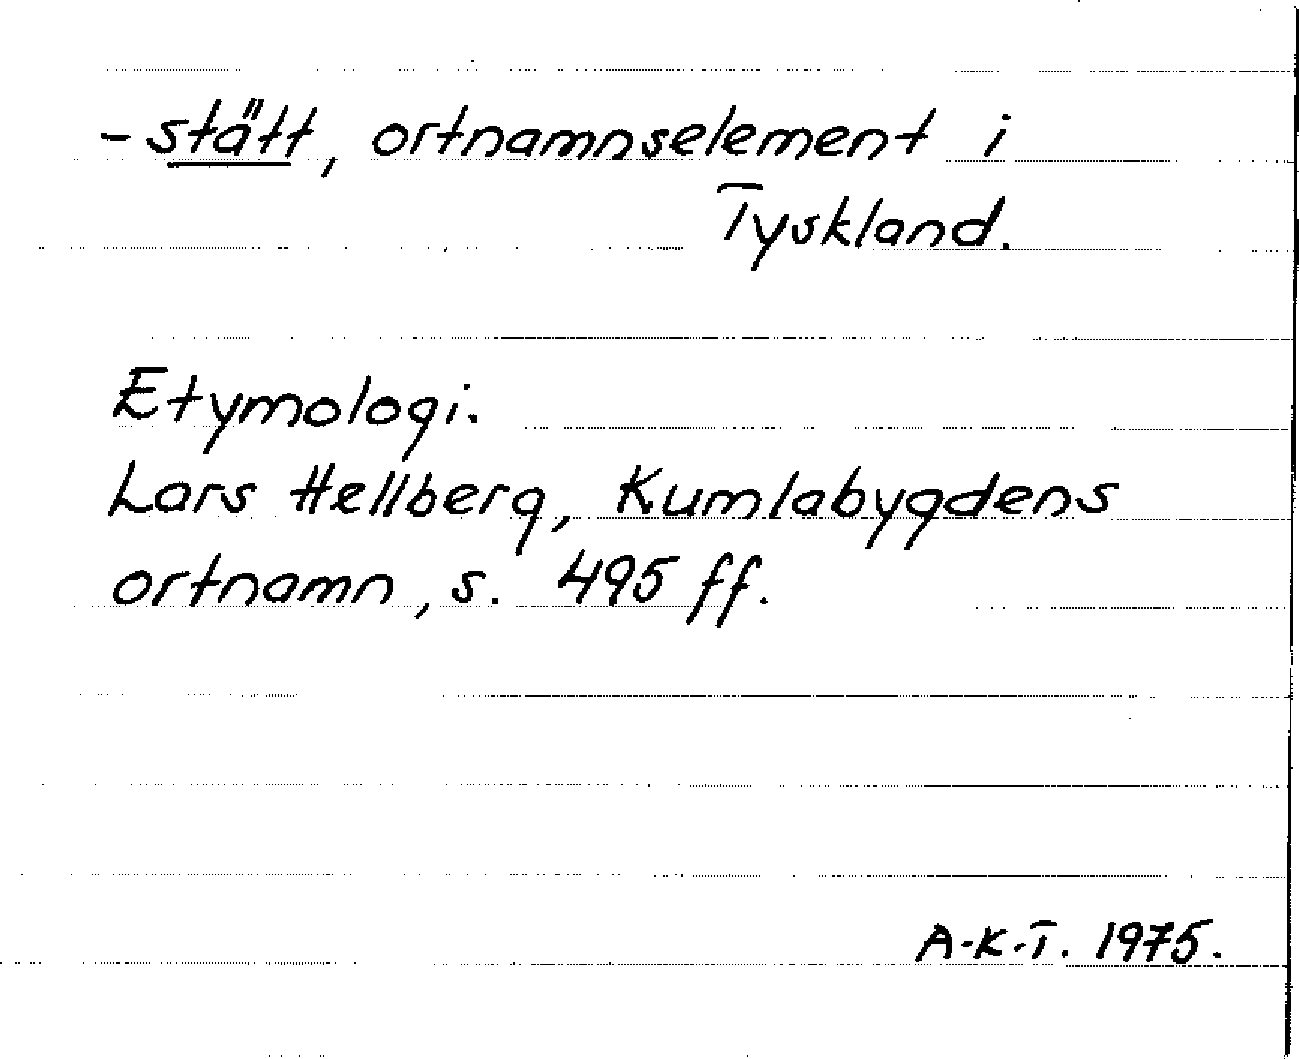 -stätt, ortnamnselement i
Tyskland.
Etymologi.
Lars Hellberg, Kumlabygdens
ortnamn, s. 495 ff.
A-K-T. 1975.